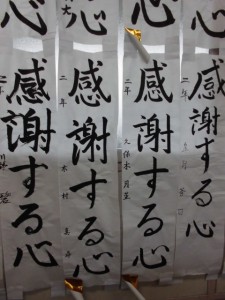 心
感謝する心
二年
心
感謝する心
二年
大保木
心
感謝する心
二年
木村
心
感謝する心